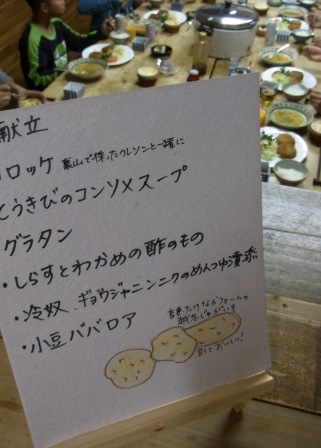 献立
ロッケ 裏山で採ったクレソンと一緒に
とうきびのコンソメスープ
グラタン
・しらすとわかめの酢のもの
・冷奴 ギョウジャニンニクのめんつゆ漬添
・小豆ババロア
越冬じゃがいも
甘くておいしい!